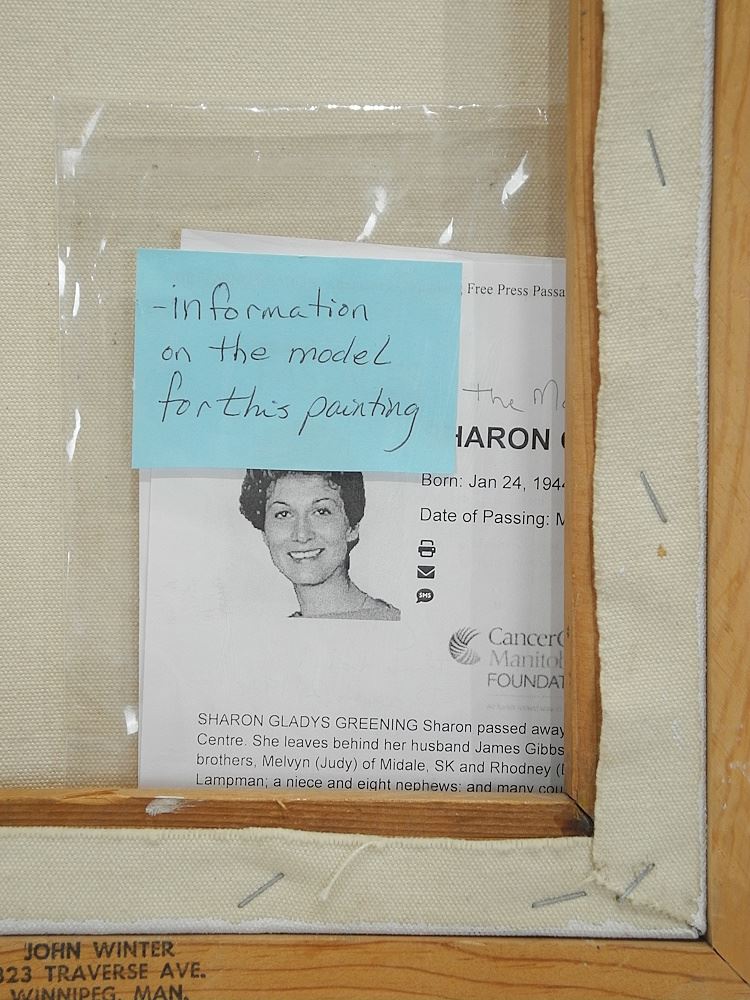 -information
on the model
for this painting
Free Press
the
HARON
Born: Jan 24, 194
Date of Passing:
SMS
FOUNDAT
SHARON GLADYS GREENING Sharon passed away
Centre. She leaves behind her husband James Gibbs
brothers, Melvyn (Judy) of Midale, SK and Rhodney
Lampman; a niece and eight nephews; and many
JOHN WINTER
323 TRAVERSE AVE.
WINNIPEG, MAN.